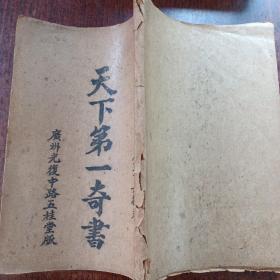 天下第一奇書
廣州光復中路五桂堂版